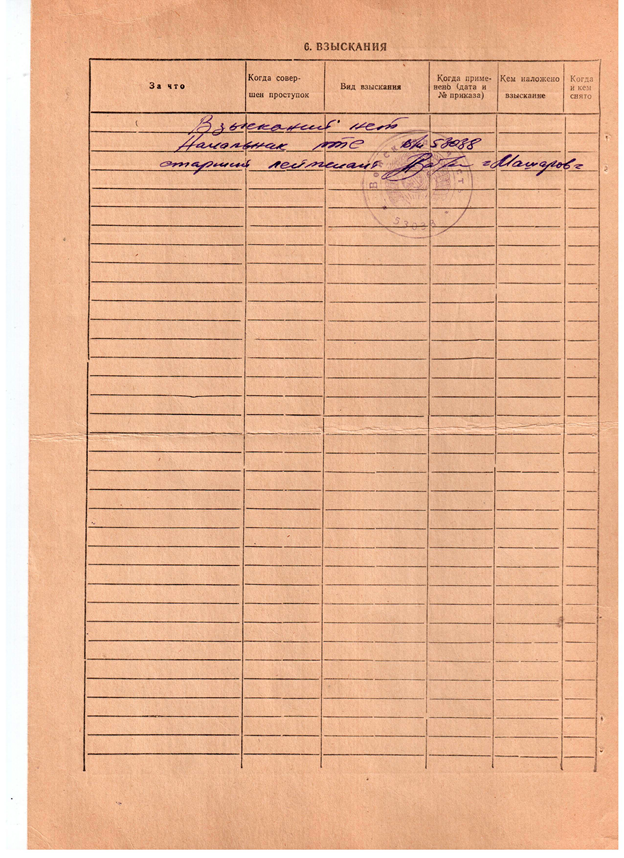 6. ВЗЫСКАНИЯ
За что
Когда совер-
шен проступок
Вид взыскания
Когда приме-
нено (дата и
№ приказа)
Кем наложено
взыскание
Когда
и кем
снято
Взысканий нет
Начальник в/ч 53038
старший лейтенант =Машаров=
53038